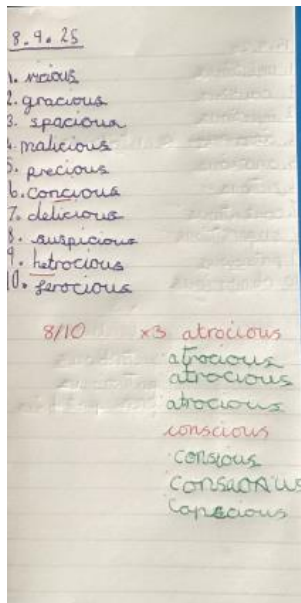 8.9.25
1. vicious
2. gracious
3. spacious
4. malicious
5. precious
6. concious
7. delicious
8. suspicious
9. hetrocious
10. ferocious
8/10 x3 atrocious
atrocious
atrocious
atrocious
conscious